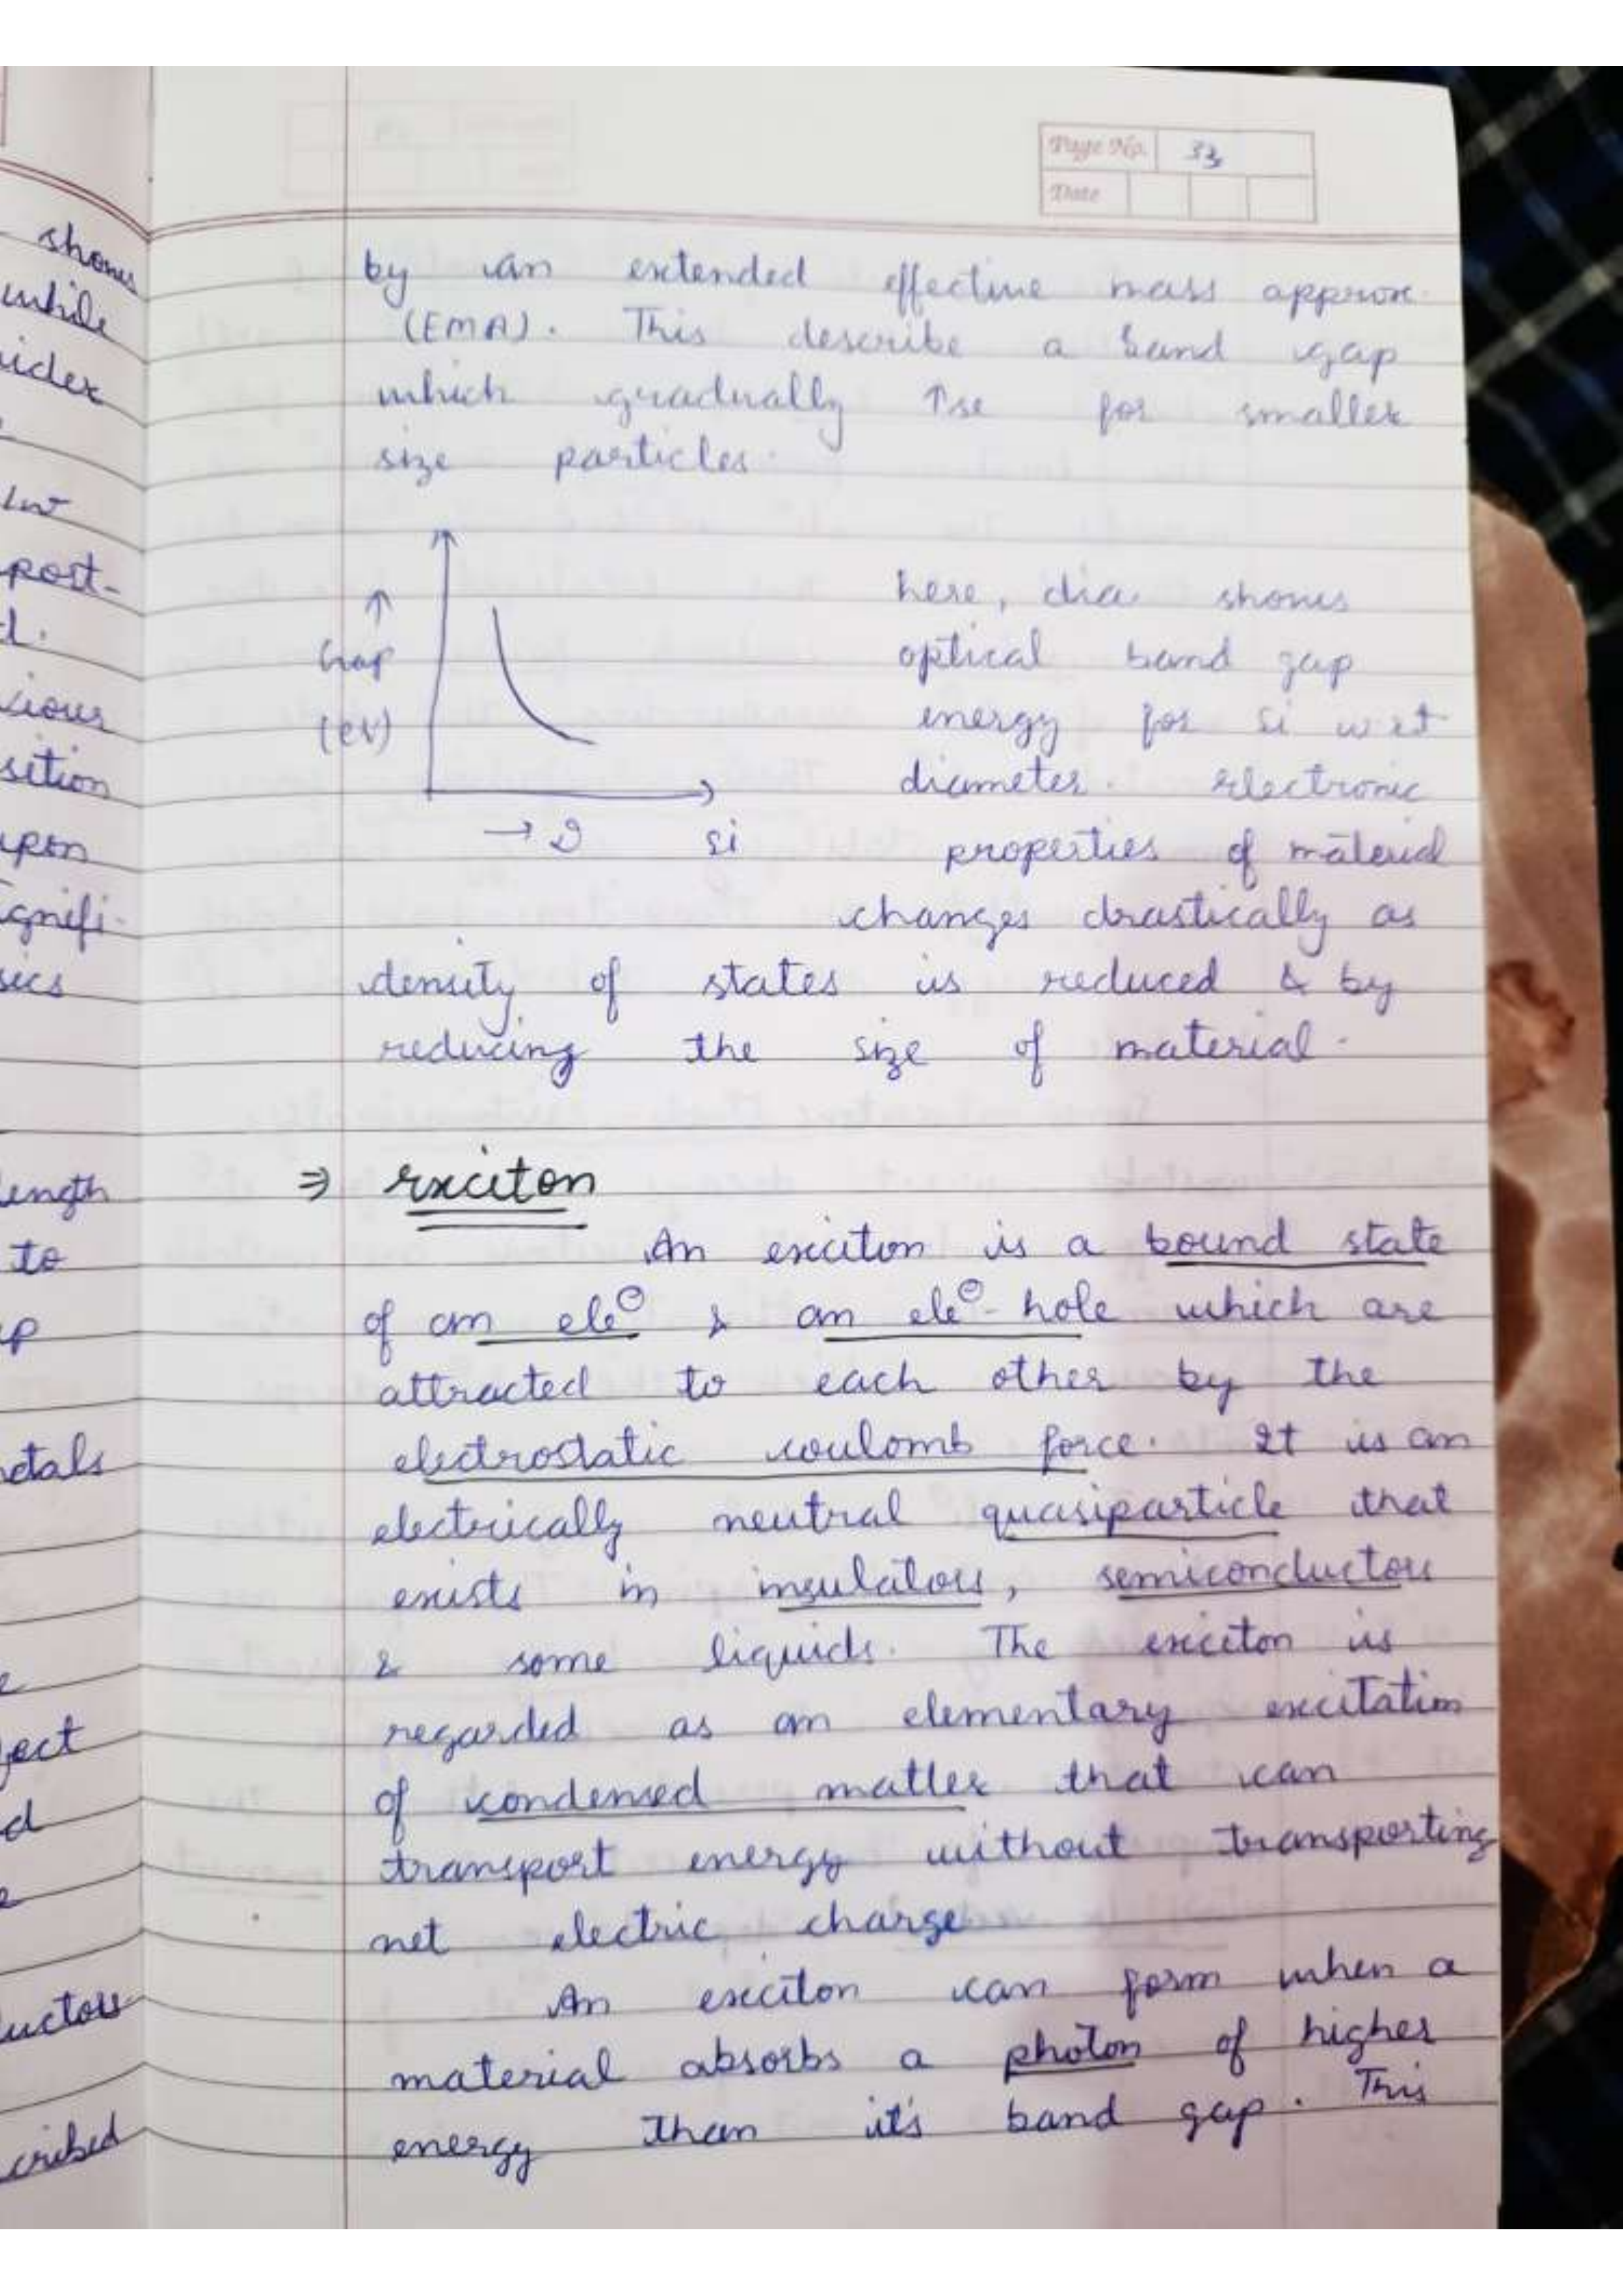 Page No. 33
Date
by an extended effective mass approx.
(EMA). This describe a band gap
which gradually ↑se for smaller
size particles.
↑
Gap
(eV)
→ D Si
here, dia shows
optical band gap
energy for Si wrt
diameter. Electronic
properties of material
changes drastically as
density of states is reduced & by
reducing the size of material.
⇒ Exciton
An exciton is a bound state
of an ele⊖ & an ele⊖-hole which are
attracted to each other by the
electrostatic coulomb force. It is an
electrically neutral quasiparticle that
exists in insulators, semiconductors
& some liquids. The exciton is
regarded as an elementary excitation
of condensed matter that can
transport energy without transporting
net electric charge
An exciton can form when a
material absorbs a photon of higher
energy than it's band gap. This
shows
while
post-
d.
cious
sition
upon
ignifi-
sics
length
to
etals
ject
d
uctors
cribed